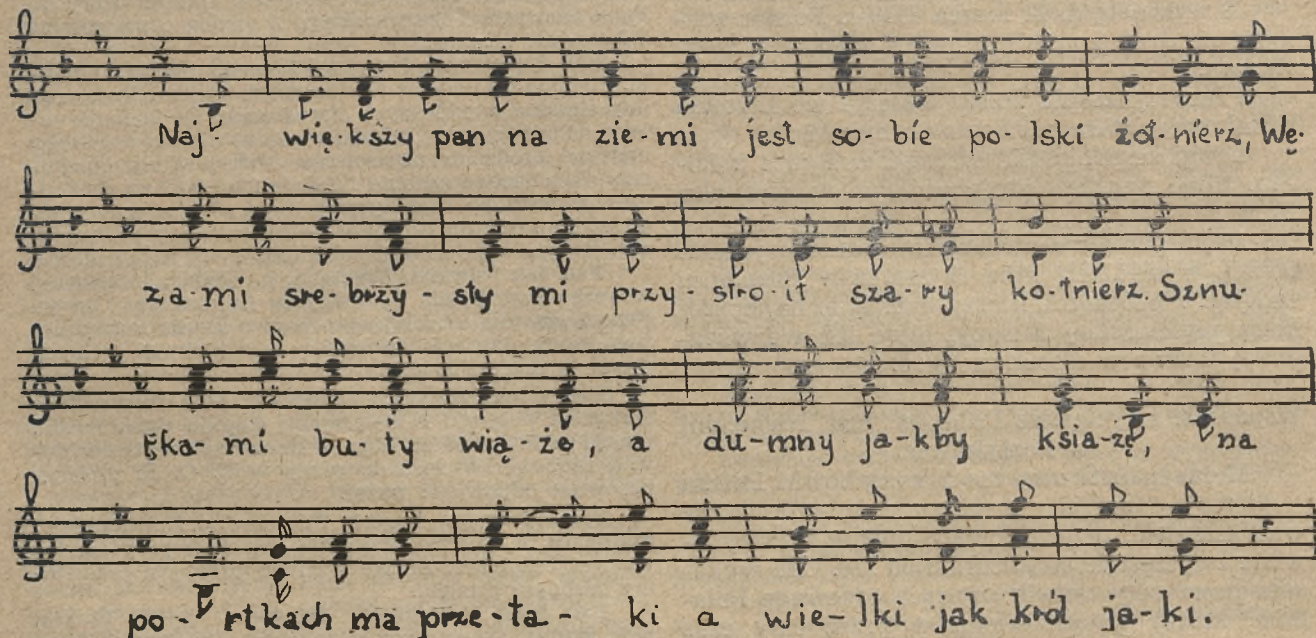 Naj- wię-kszy pan na zie-mi jest so-bie po-lski żoł-nierz, Wę-
za-mi sre-brzy-sty mi przy-stro-ił sza-ry ko-łnierz. Sznu-
rka-mi bu-ty wią-że, a du-mny ja-kby ksia-zę, na
po-rtkach ma prze-ta-ki a wie-lki jak król ja-ki.